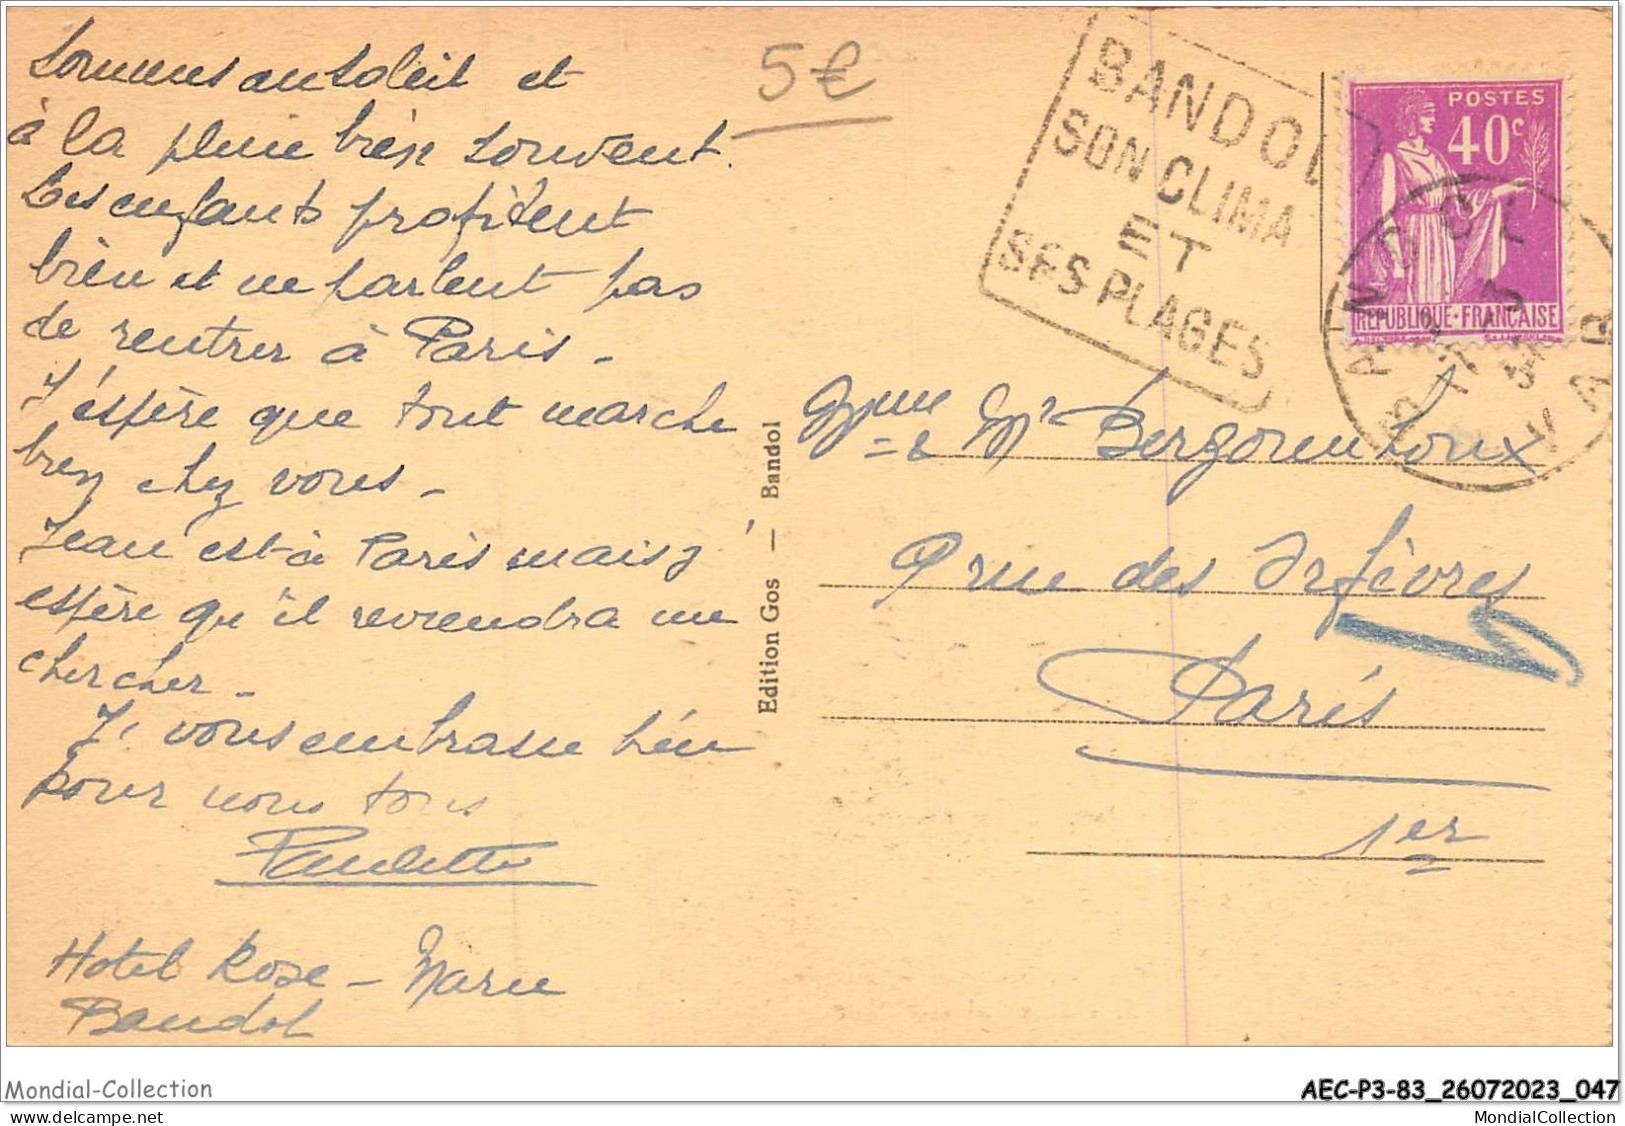 Sommes au soleil et
à la pluie bien souvent.
Les enfants profitent
bien et ne parlent pas
de rentrer à Paris -
J'espère que tout marche
bien chez vous -
Jean est à Paris mais j'
espère qu'il reviendra me
chercher -
Je vous embrasse bien
pour nous tous
Paulette
Hotel Rose - Marie
Bandol
5€
Edition Gos — Bandol
BANDOL
SON CLIMA
ET
SES PLAGES
POSTES
40c
REPUBLIQUE·FRANÇAISE
BANDOL
VAR
Mme & Mr
9 rue des Orfèvres
Paris
1er
Mondial-Collection
AEC-P3-83_26072023_047
www.delcampe.net
MondialCollection